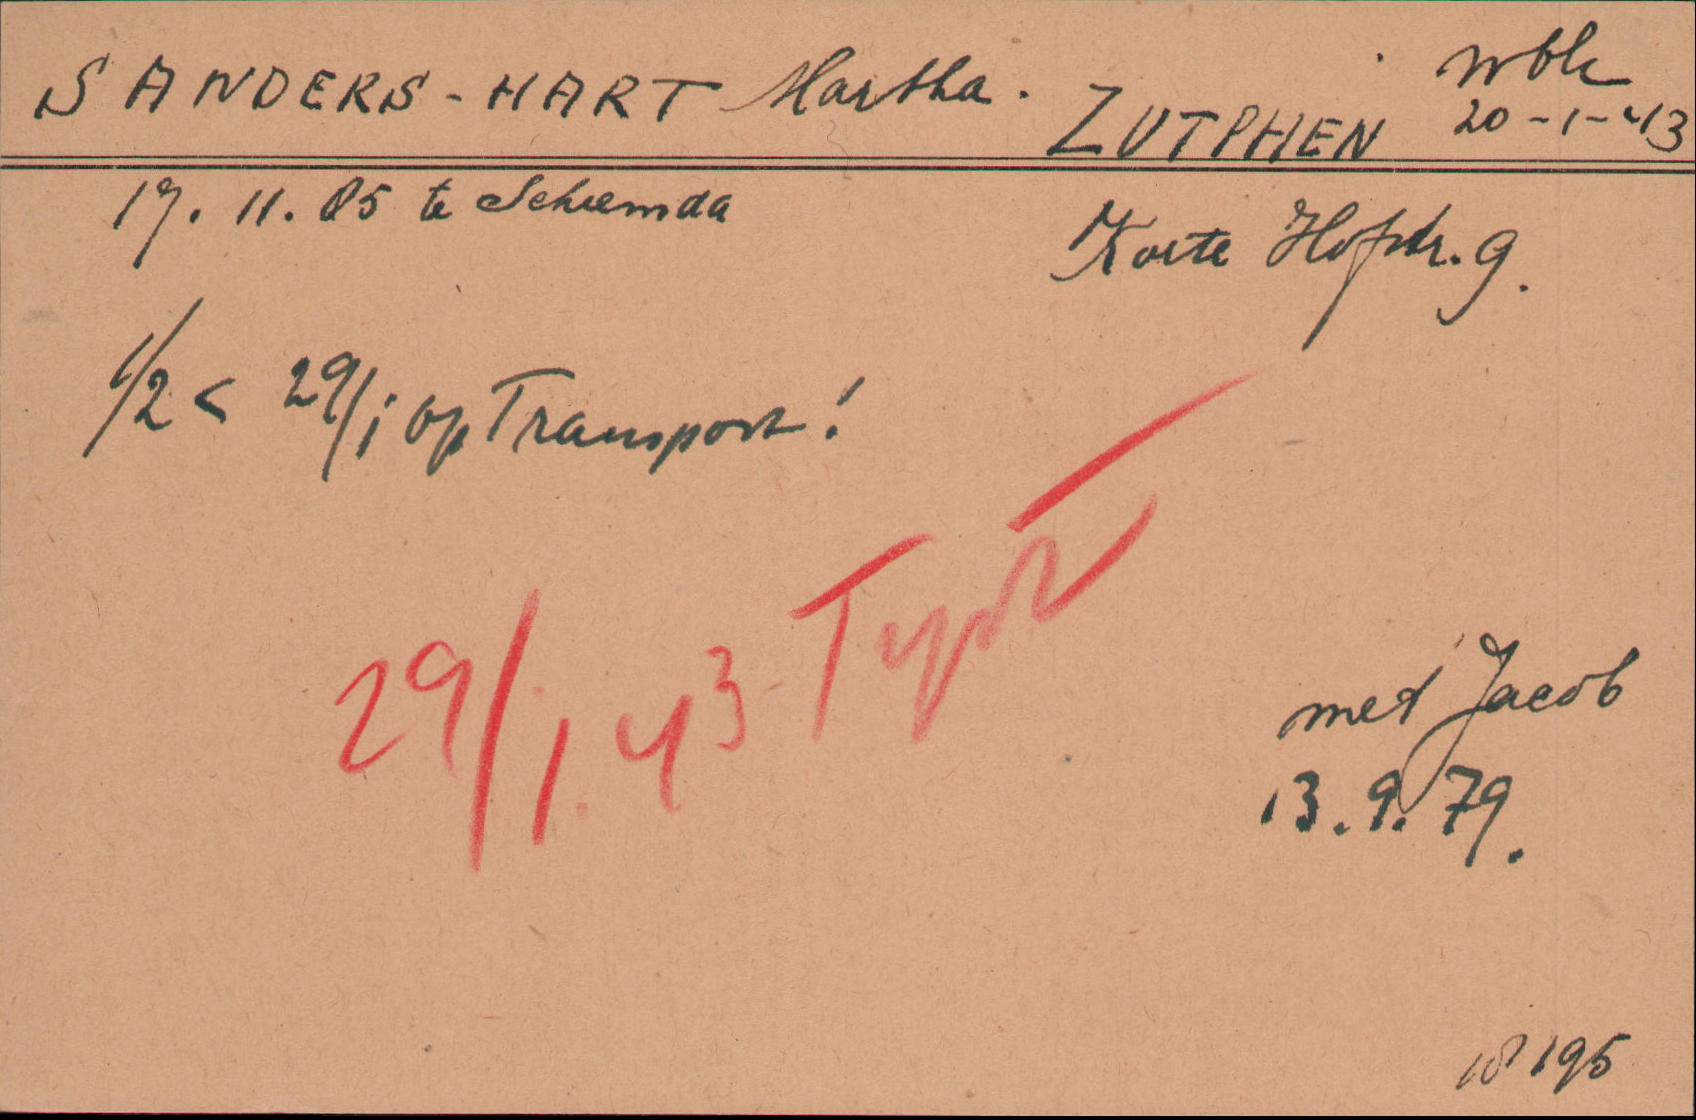 SANDERS-HART Martha.
ZUTPHEN
wbk
20-1-43
17. 11. 85 te Scheemda
Korte Hofstr. 9.
1/2 < 29/1 op Transport!
29/1.43 Tspt
met Jacob
13.9.79.
18195